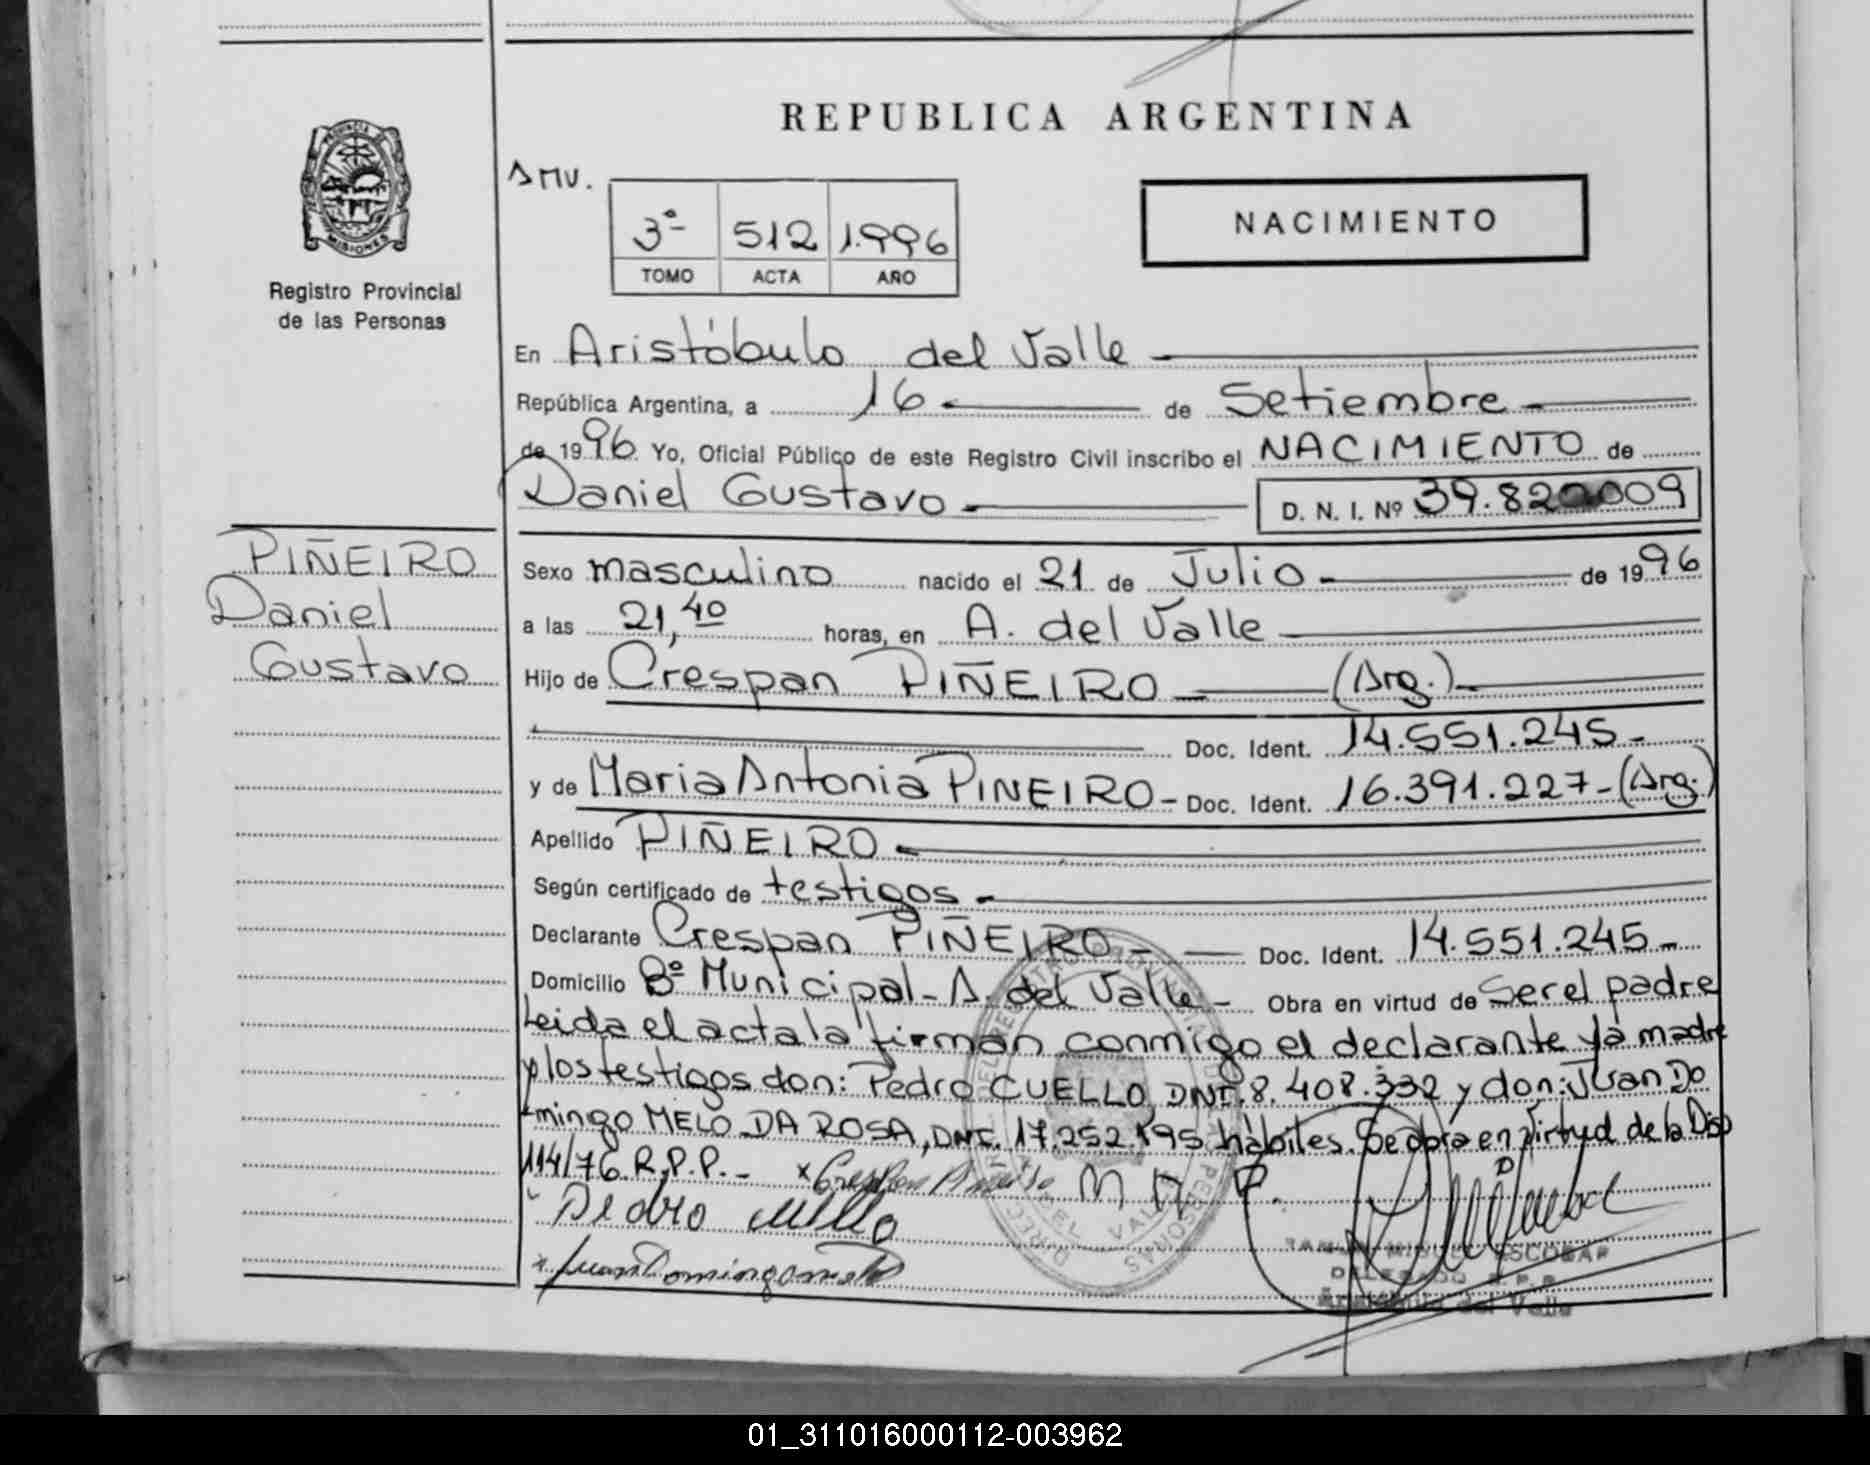 REPUBLICA ARGENTINA
PROVINCIA DE
MISIONES
Registro Provincial
de las Personas
AMV.
3º 512 1.996
TOMO ACTA AÑO
NACIMIENTO
En Aristóbulo del Valle
República Argentina, a 16 de Setiembre
de 1996 Yo, Oficial Público de este Registro Civil inscribo el NACIMIENTO de
Daniel Gustavo D. N. I. Nº 39.820009
PIÑEIRO
Daniel
Gustavo
Sexo masculino nacido el 21 de Julio de 1996
a las 21,40 horas, en A. del Valle
Hijo de Crespan PIÑEIRO (Arg.)
Doc. Ident. 14.551.245-
y de Maria Antonia PINEIRO- Doc. Ident. 16.391.227-(Arg.)
Apellido PIÑEIRO
Según certificado de testigos-
Declarante Crespan PIÑEIRO- Doc. Ident. 14.551.245-
Domicilio Bº Municipal-A. del Valle- Obra en virtud de Ser el padre
Leida el acta la firman conmigo el declarante la madre
y los testigos don: Pedro CUELLO DNI. 8.408.332 y don: Juan Do
mingo MELO DA ROSA, DNI. 17.252.195 hábiles. Se obra en virtud de la Disp
114/76.R.P.P.- x Crespan Piñeiro M A P.
Pedro cuello
x Juan Domingo melo
ESCOBAR
DELEGADO R.P.P.
Aristóbulo del Valle
01_311016000112-003962